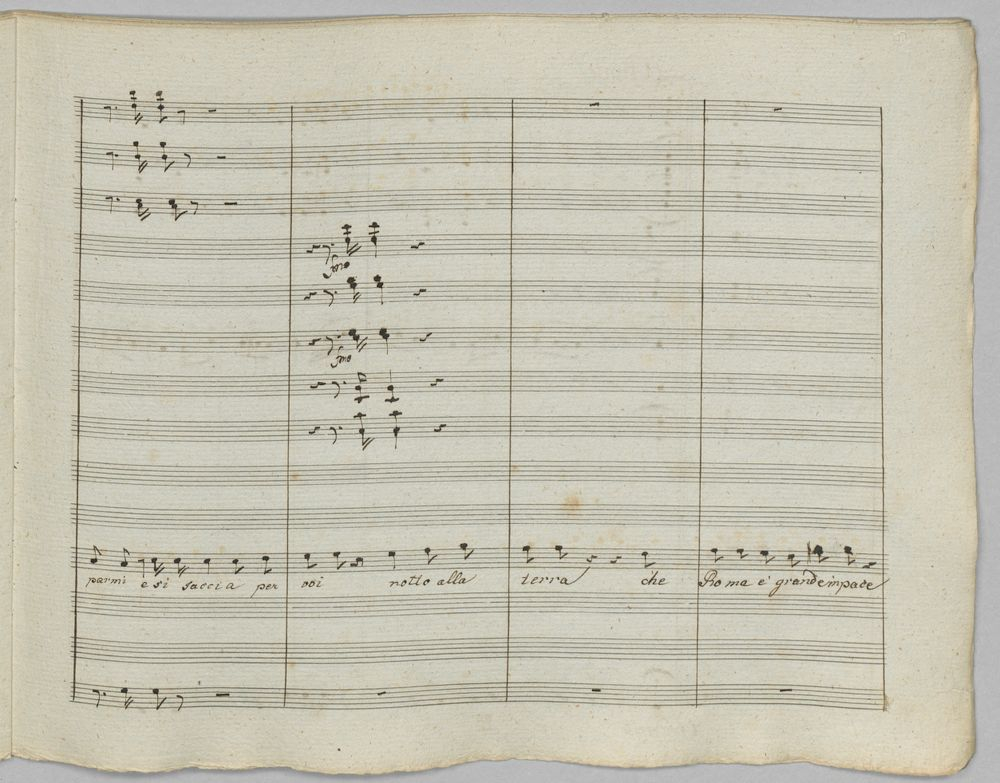 fmo
fmo
parmi e si faccia per voi notto alla terra che Roma e' grande in pace